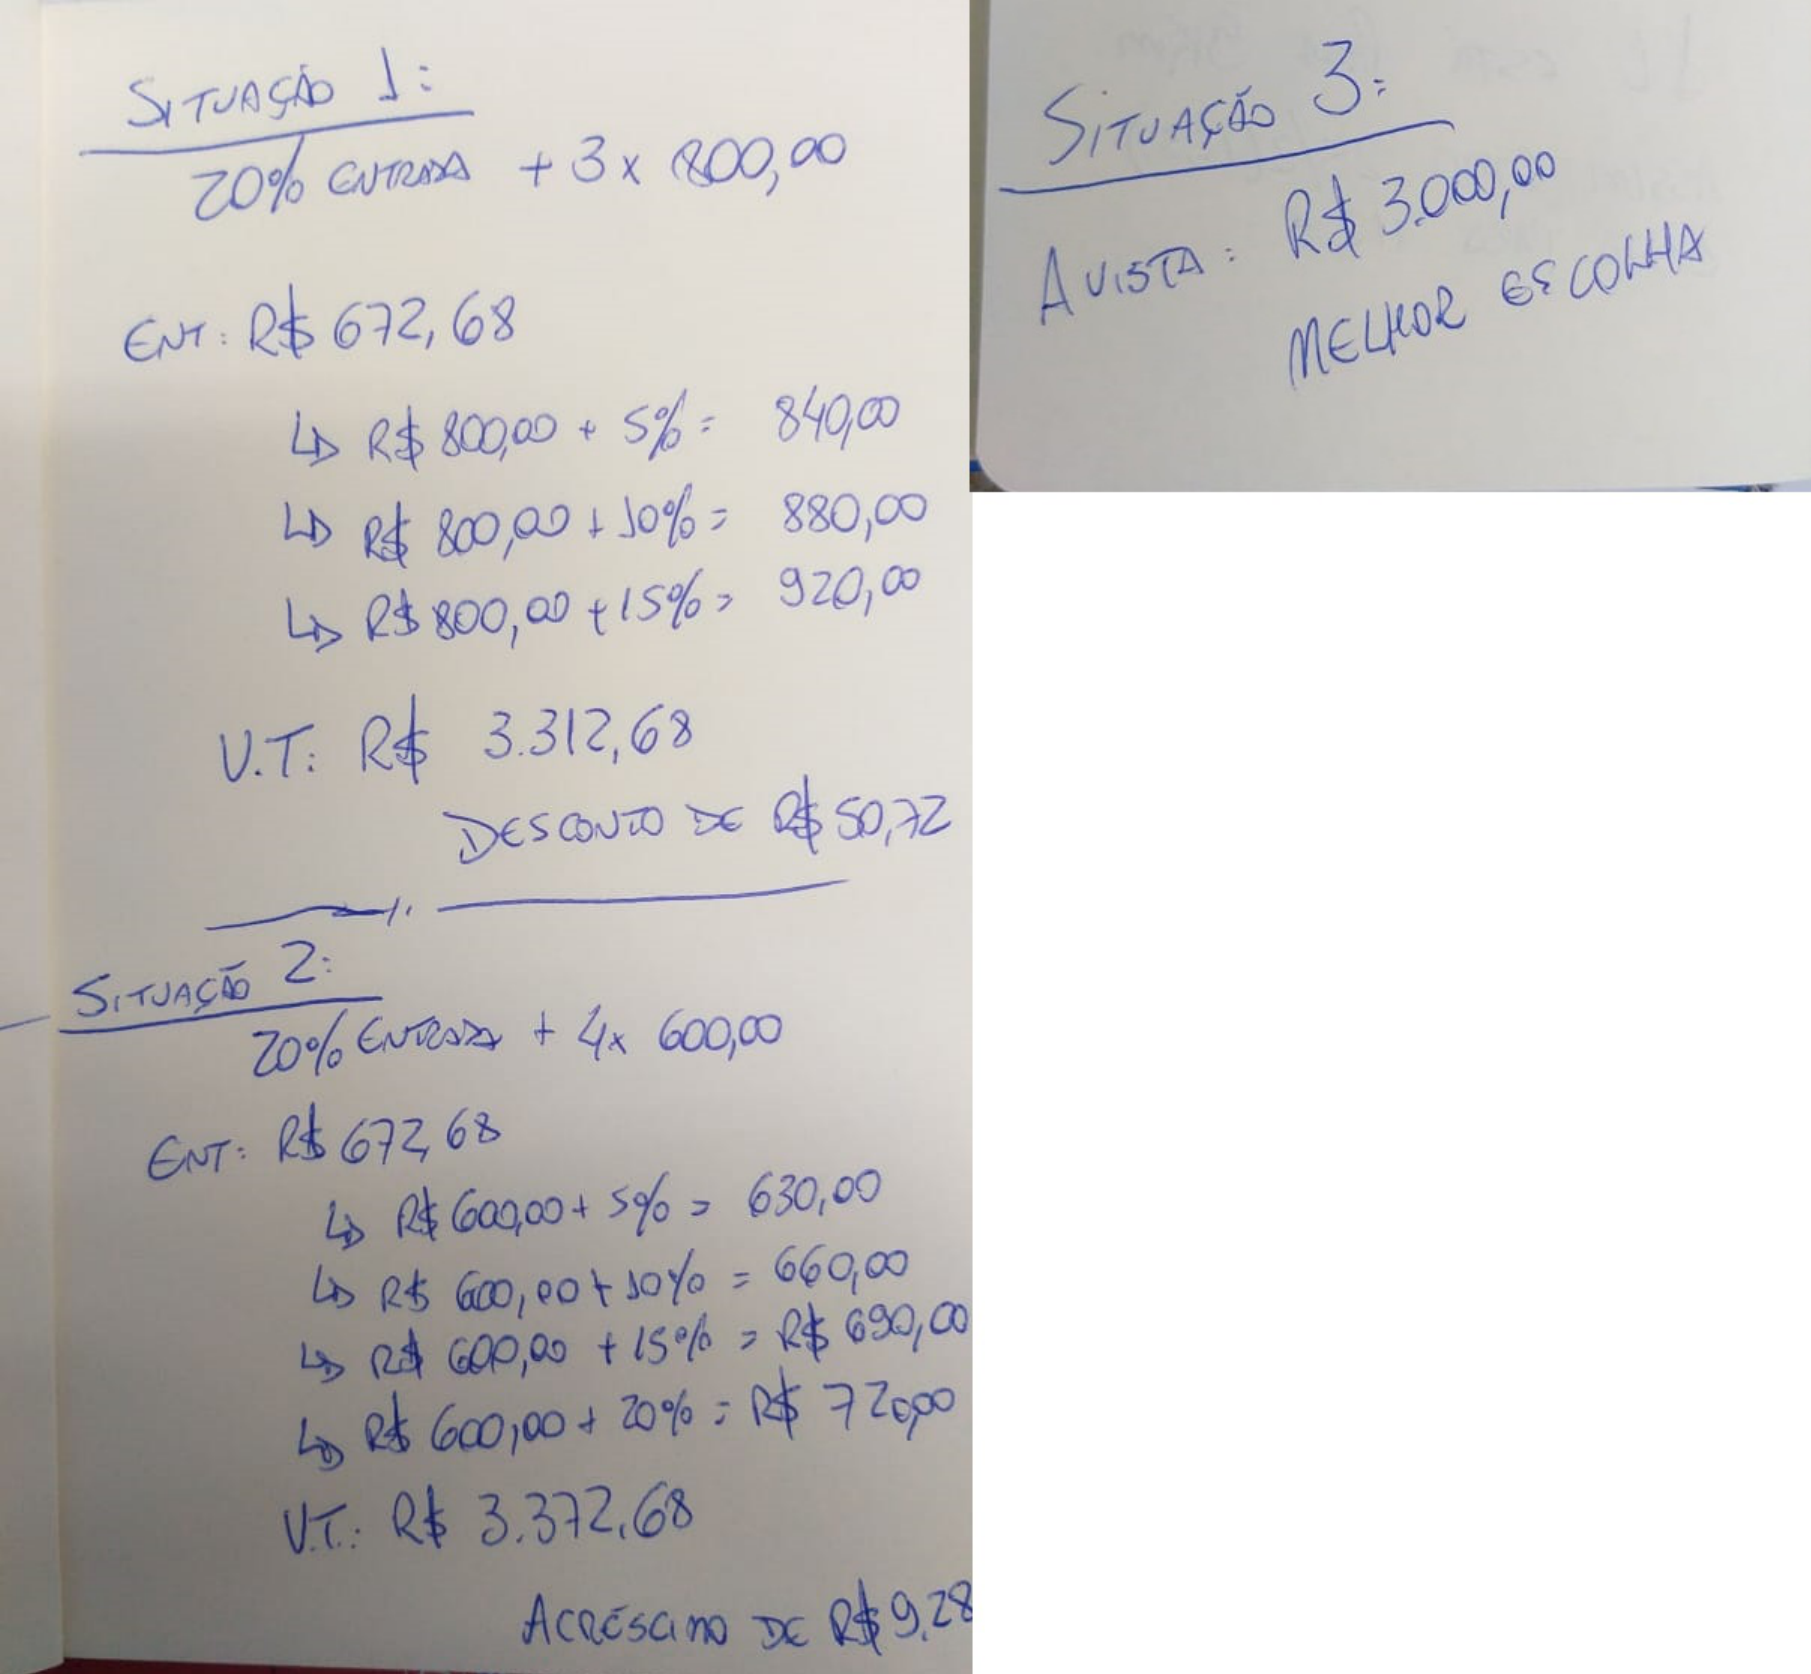 SITUAÇÃO 1:
20% ENTRADA + 3x 800,00
ENT: R$ 672,68
↳ R$ 800,00 + 5% = 840,00
↳ R$ 800,00 + 10% = 880,00
↳ R$ 800,00 + 15% = 920,00
V.T: R$ 3.312,68
DESCONTO DE R$ 50,72
SITUAÇÃO 2:
20% ENTRADA + 4x 600,00
ENT: R$ 672,68
↳ R$ 600,00 + 5% = 630,00
↳ R$ 600,00 + 10% = 660,00
↳ R$ 600,00 + 15% = R$ 690,00
↳ R$ 600,00 + 20% = R$ 720,00
V.T.: R$ 3.372,68
ACRÉSCIMO DE R$ 9,28
SITUAÇÃO 3:
A VISTA: R$ 3.000,00
MELHOR ESCOLHA